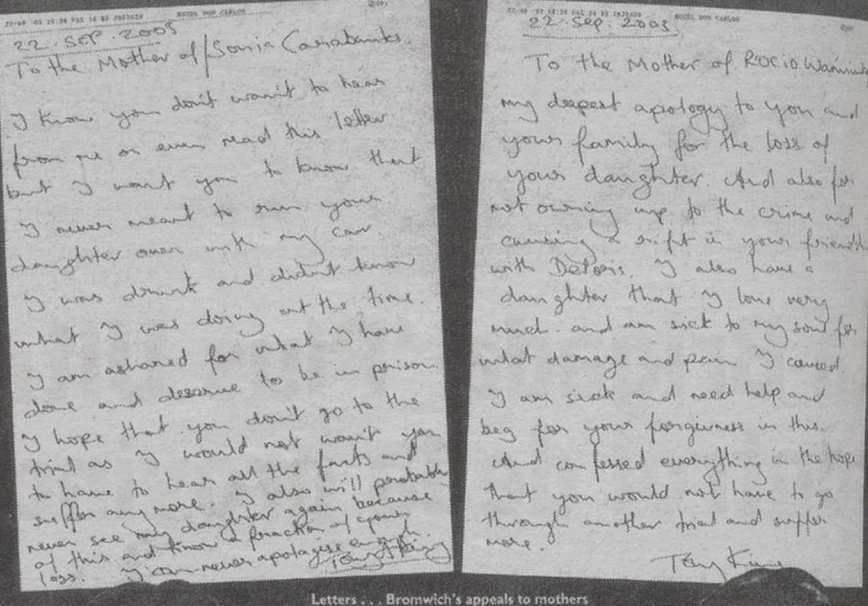 HOTEL DON CARLOS
22. SEP. 2003
To the Mother of Sonia Carabantes.
I know you don't want to hear
from me or even read this letter
but I want you to know that
I never meant to run your
daughter over with my car.
I was drunk and didn't know
what I was doing at the time.
I am ashamed for what I have
done and deserve to be in prison.
I hope that you don't go to the
trial as I would not want you
to have to hear all the facts and
suffer any more. I also will probably
never see my daughter again because
of this and know a fraction of your
loss. I can never apologise enough.
Tony King
HOTEL DON CARLOS
22. SEP. 2003.
To the Mother of ROCIO Wanninkh
my deepest apology to you and
your family for the loss of
your daughter. And also for
not owning up to the crime and
causing a rift in your friendsh
with Deloris. I also have a
daughter that I love very
much. and am sick to my soul for
what damage and pain I caused.
I am sick and need help and
beg for your forgiveness in this.
And confessed everything in the hope
that you would not have to go
through another trial and suffer
more.
Tony King
Letters . . . Bromwich's appeals to mothers